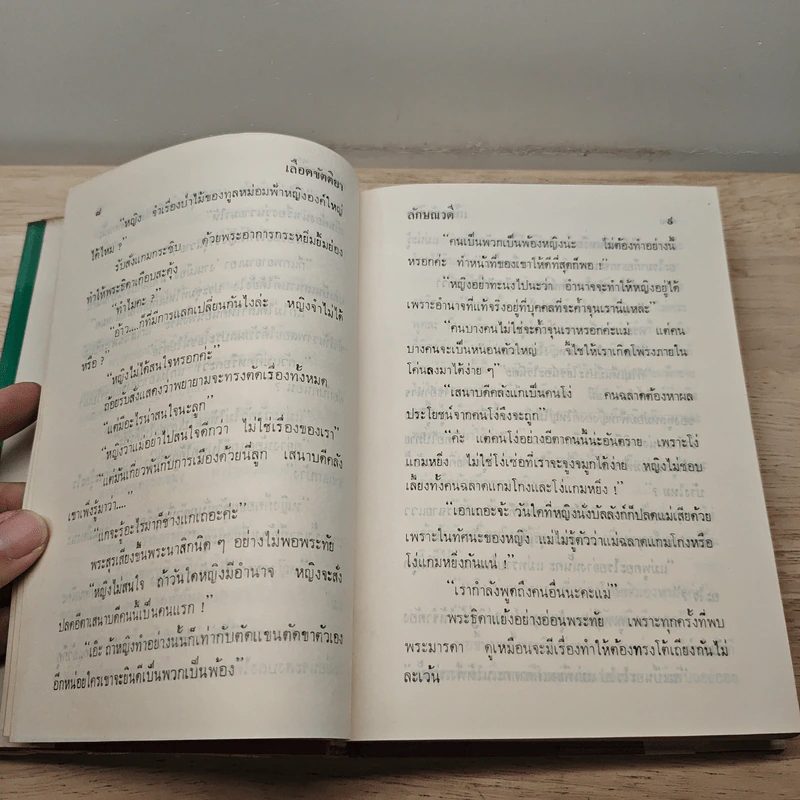 ๘
เลือดขัตติยา
“หญิง จำเรื่องป่าไม้ของทูลหม่อมฟ้าหญิงองค์ใหญ่
ได้ไหม ?”
รับสั่งแกมกระซิบ ด้วยพระอาการกระหยิ่มยิ้มย่อง
ทำให้พระธิดาเกือบสะดุ้ง
“ทำไมคะ ?”
“อ้าว....ก็ที่มีการแลกเปลี่ยนกันไงล่ะ หญิงจำไม่ได้
หรือ ?”
“หญิงไม่ได้สนใจหรอกค่ะ”
ถ้อยรับสั่งแสดงว่าพยายามจะทรงตัดเรื่องทั้งหมด
“แต่มีอะไรน่าสนใจนะลูก”
“หญิงว่าแม่อย่าไปสนใจดีกว่า ไม่ใช่เรื่องของเรา”
“แต่มันเกี่ยวพันกับการเมืองด้วยนี่ลูก เสนาบดีคลัง
เขาเพิ่งรู้มาว่า....”
“แกจะรู้อะไรมาก็ช่างแกเถอะค่ะ”
พระสุรเสียงขึ้นพระนาสิกนิด ๆ อย่างไม่พอพระทัย
“หญิงไม่สนใจ ถ้าวันใดหญิงมีอำนาจ หญิงจะสั่ง
ปลดอีตาเสนาบดีคนนี้เป็นคนแรก !”
“เอ๊ะ ถ้าหญิงทำอย่างนั้นก็เท่ากับตัดแขนตัดขาตัวเอง
อีกหน่อยใครเขาจะยินดีเป็นพวกเป็นพ้อง”
ลักษณวดี
๙
“คนเป็นพวกเป็นพ้องหญิงน่ะ ไม่ต้องทำอย่างนี้
หรอกค่ะ ทำหน้าที่ของเขาให้ดีที่สุดก็พอ !”
“หญิงอย่าทะนงไปนะว่า อำนาจจะทำให้หญิงอยู่ได้
เพราะอำนาจที่แท้จริงอยู่ที่บุคคลที่จะค้ำจุนเรานี่แหละ”
“คนบางคนไม่ใช่จะค้ำจุนเราหรอกค่ะแม่ แต่คน
บางคนจะเป็นหนอนตัวใหญ่ จี้ไชให้เราเกิดโพรงภายใน
โค่นลงมาได้ง่าย ๆ”
“เสนาบดีคลังแกเป็นคนโง่ คนฉลาดต้องหาผล
ประโยชน์จากคนโง่จึงจะถูก”
“ค่ะ แต่คนโง่อย่างอีตาคนนี้น่ะอันตราย เพราะโง่
แกมหยิ่ง ไม่ใช่โง่เซ่อที่เราจะจูงจมูกได้ง่าย หญิงไม่ชอบ
เลี้ยงทั้งคนฉลาดแกมโกงและโง่แกมหยิ่ง !”
“เอาเถอะจ้ะ วันใดที่หญิงนั่งบัลลังก์ก็ปลดแม่เสียด้วย
เพราะในทัศนะของหญิง แม่ไม่รู้ตัวว่าแม่ฉลาดแกมโกงหรือ
โง่แกมหยิ่งกันแน่ !”
“เรากำลังพูดถึงคนอื่นนะคะแม่”
พระธิดาแย้งอย่างอ่อนพระทัย เพราะทุกครั้งที่พบ
พระมารดา ดูเหมือนจะมีเรื่องทำให้ต้องทรงโต้เถียงกันไม่
ละเว้น